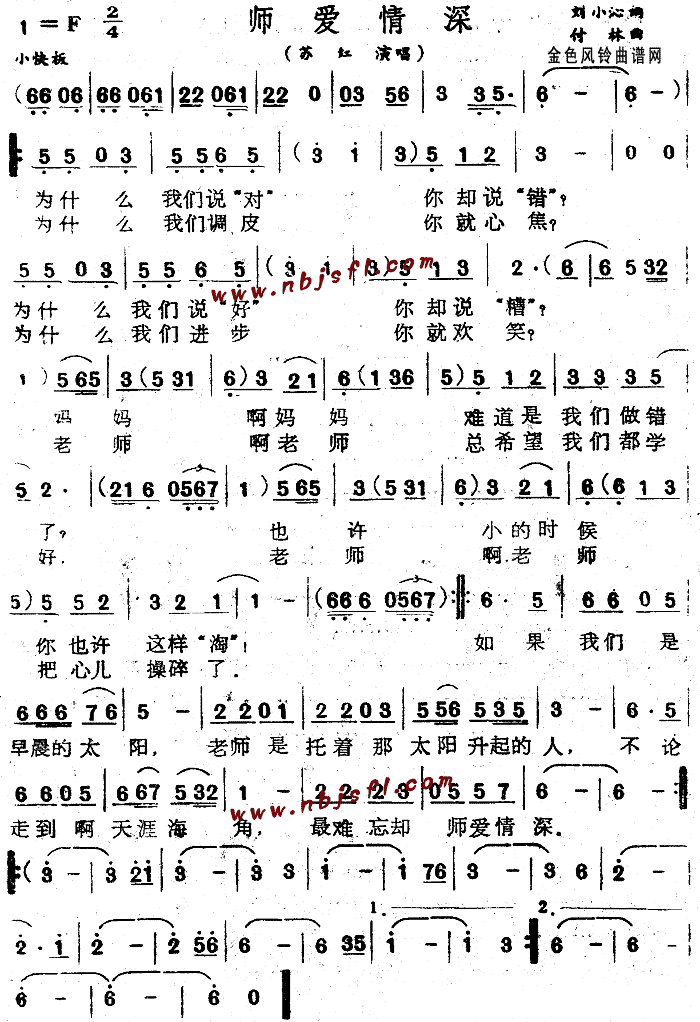 师爱情深
1=F 2/4
刘小沁 词
付林 曲
小快板
(苏红 演唱)
金色风铃曲谱网
(66 06 | 66 061 | 22 061 | 22 0 | 03 56 | 3 35· | 6 - | 6 -)
5 5 03 | 55 6 5 | (3 1 | 3)5 12 | 3 - | 0 0
为什么我们说"对" 你却说"错"?
为什么我们调皮 你就心焦?
55 03 | 55 6 5 | (3 1 | 3)5 13 | 2·(6 | 6 532
www.nbjsfl.com
为什么我们说"好" 你却说"糟"?
为什么我们进步 你就欢笑?
1)565 | 3(531 | 6)3 21 | 6(136 | 5)5 12 | 33 35
妈妈 啊妈妈 难道是我们做错
老师 啊老师 总希望我们都学
5 2· | (216 0567 | 1)565 | 3(531 | 6)3 21 | 6(6 13
了? 也许 小的时候
好. 老师 啊老师
5)5 52 | 32 1 | 1 - | (666 0567) | 6· 5 | 66 05
你也许 这样"淘"! 如果我们是
把心儿 操碎了.
666 76 | 5 - | 2201 | 2203 | 556 535 | 3 - | 6·5
早晨的太阳, 老师是托着那太阳升起的人, 不论
6605 | 667 532 | 1 - | 22 23 | 0557 | 6 - | 6 -
www.nbjsfl.com
走到啊天涯海角, 最难忘却 师爱情深.
(3 - | 3 21 | 3 - | 3 3 | 1 - | 1 76 | 3 - | 3 6 | 2 -
2· 1 | 2 - | 2 56 | 6 - | 6 35 | 1. 1 - | 1 3 | 2. 6 -
6 - | 6 - | 6 0